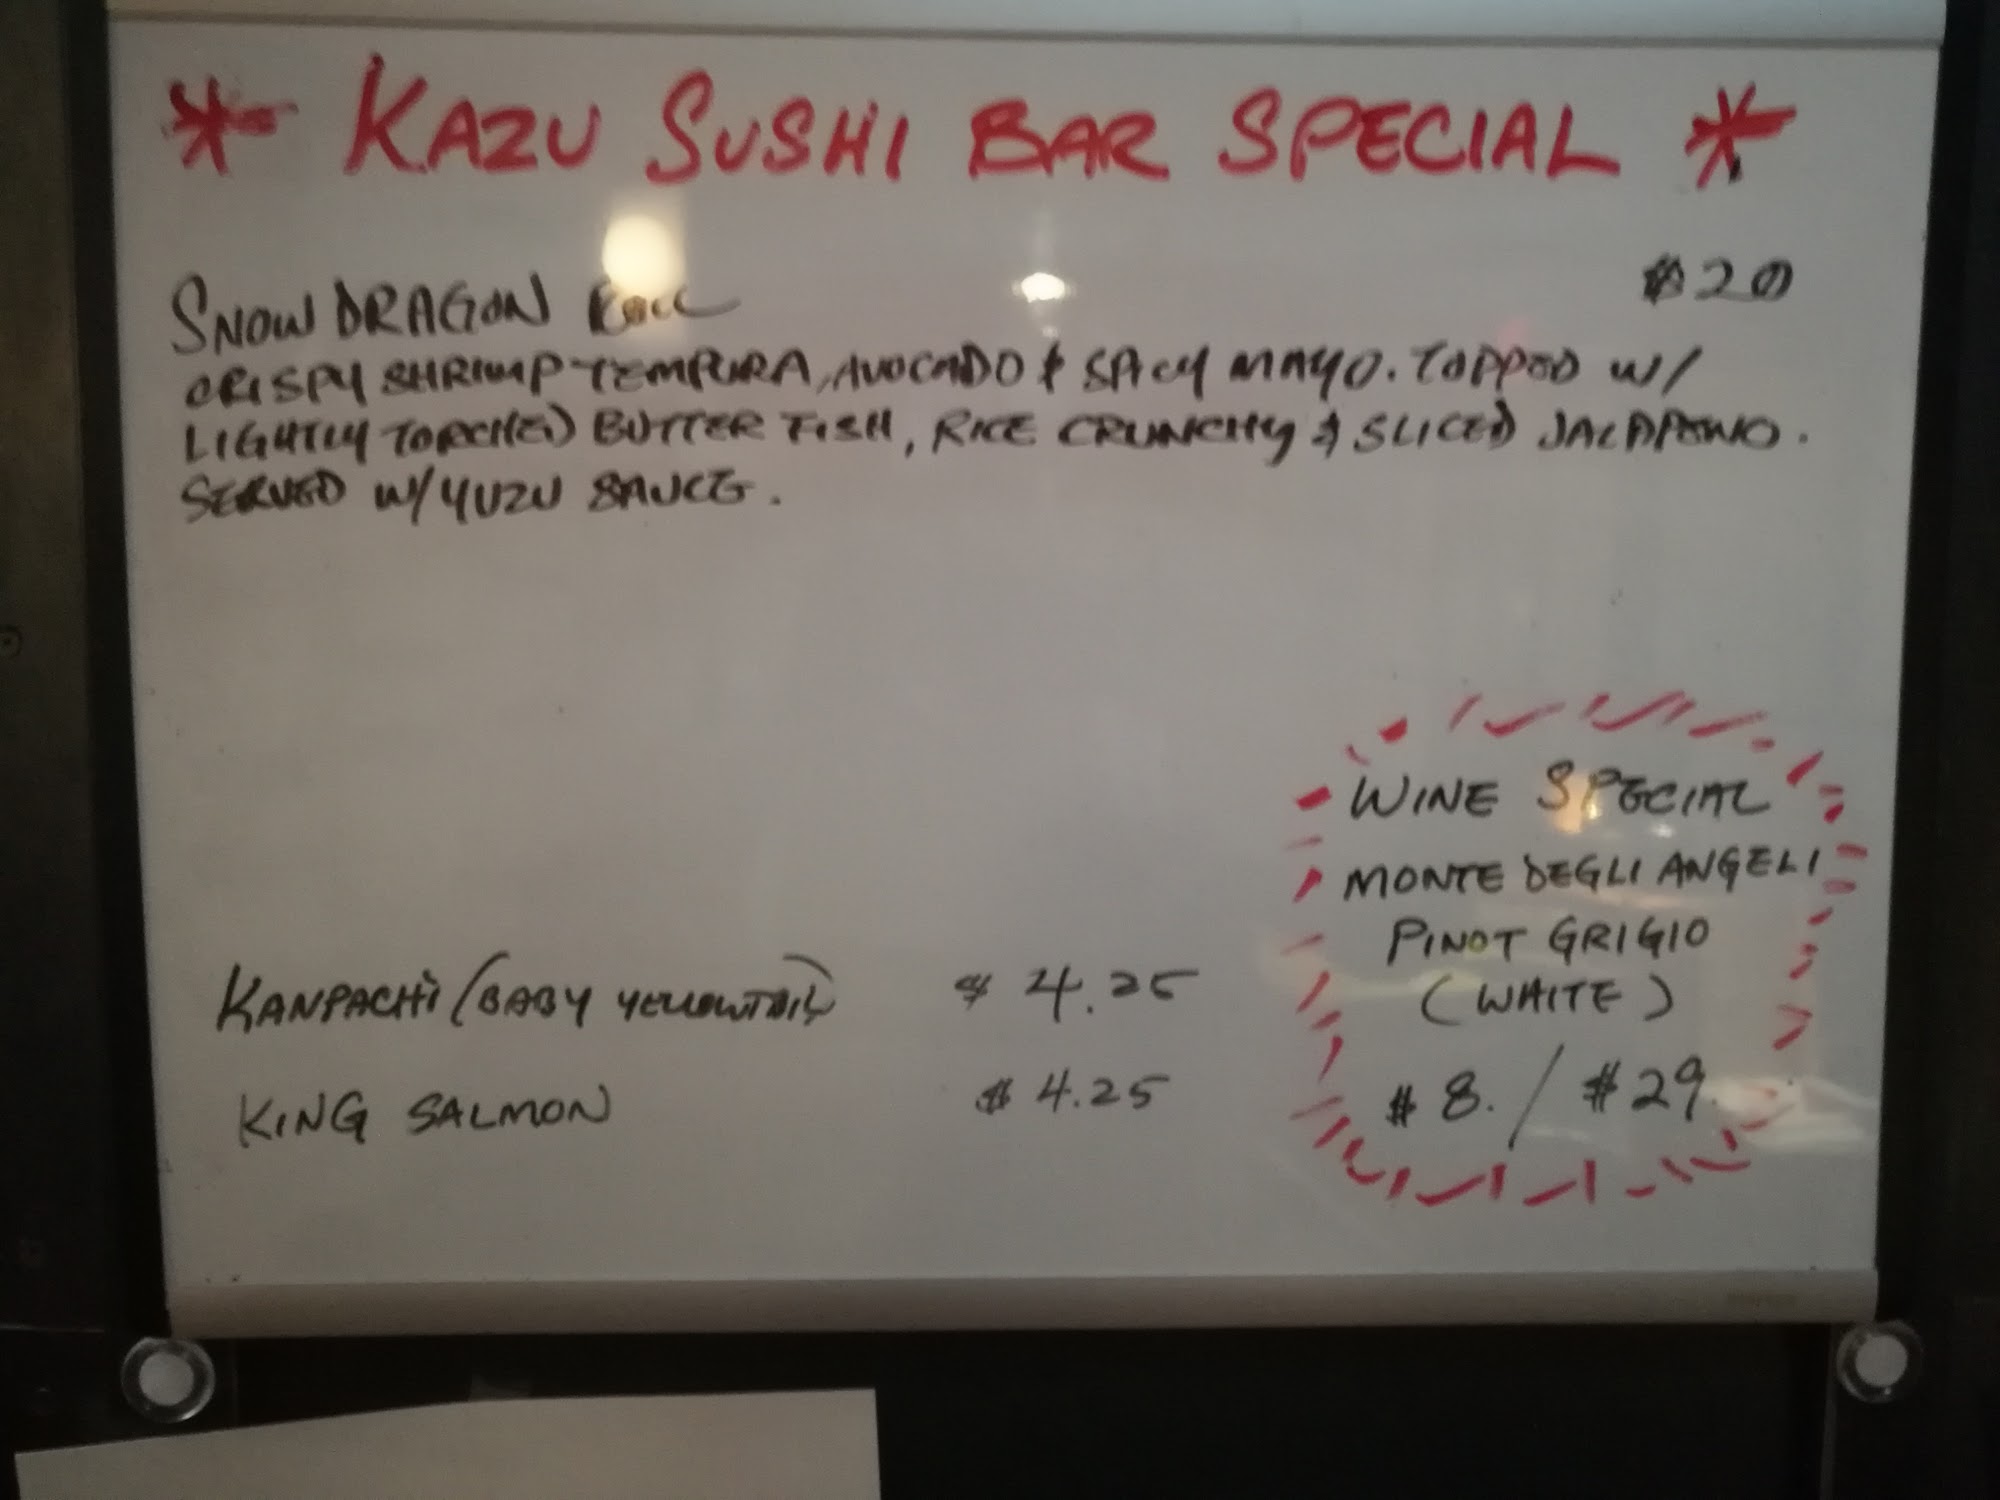 * KAZU SUSHI BAR SPECIAL *
SNOW DRAGON ROLL $20
CRISPY SHRIMP TEMPURA, AVOCADO & SPICY MAYO. TOPPED W/
LIGHTLY TORCHED BUTTER FISH, RICE CRUNCHY & SLICED JALAPENO.
SERVED W/ YUZU SAUCE.
WINE SPECIAL
MONTE DEGLI ANGELI
PINOT GRIGIO
(WHITE)
$8. / $29.
KANPACHI (BABY YELLOWTAIL) $4.25
KING SALMON $4.25